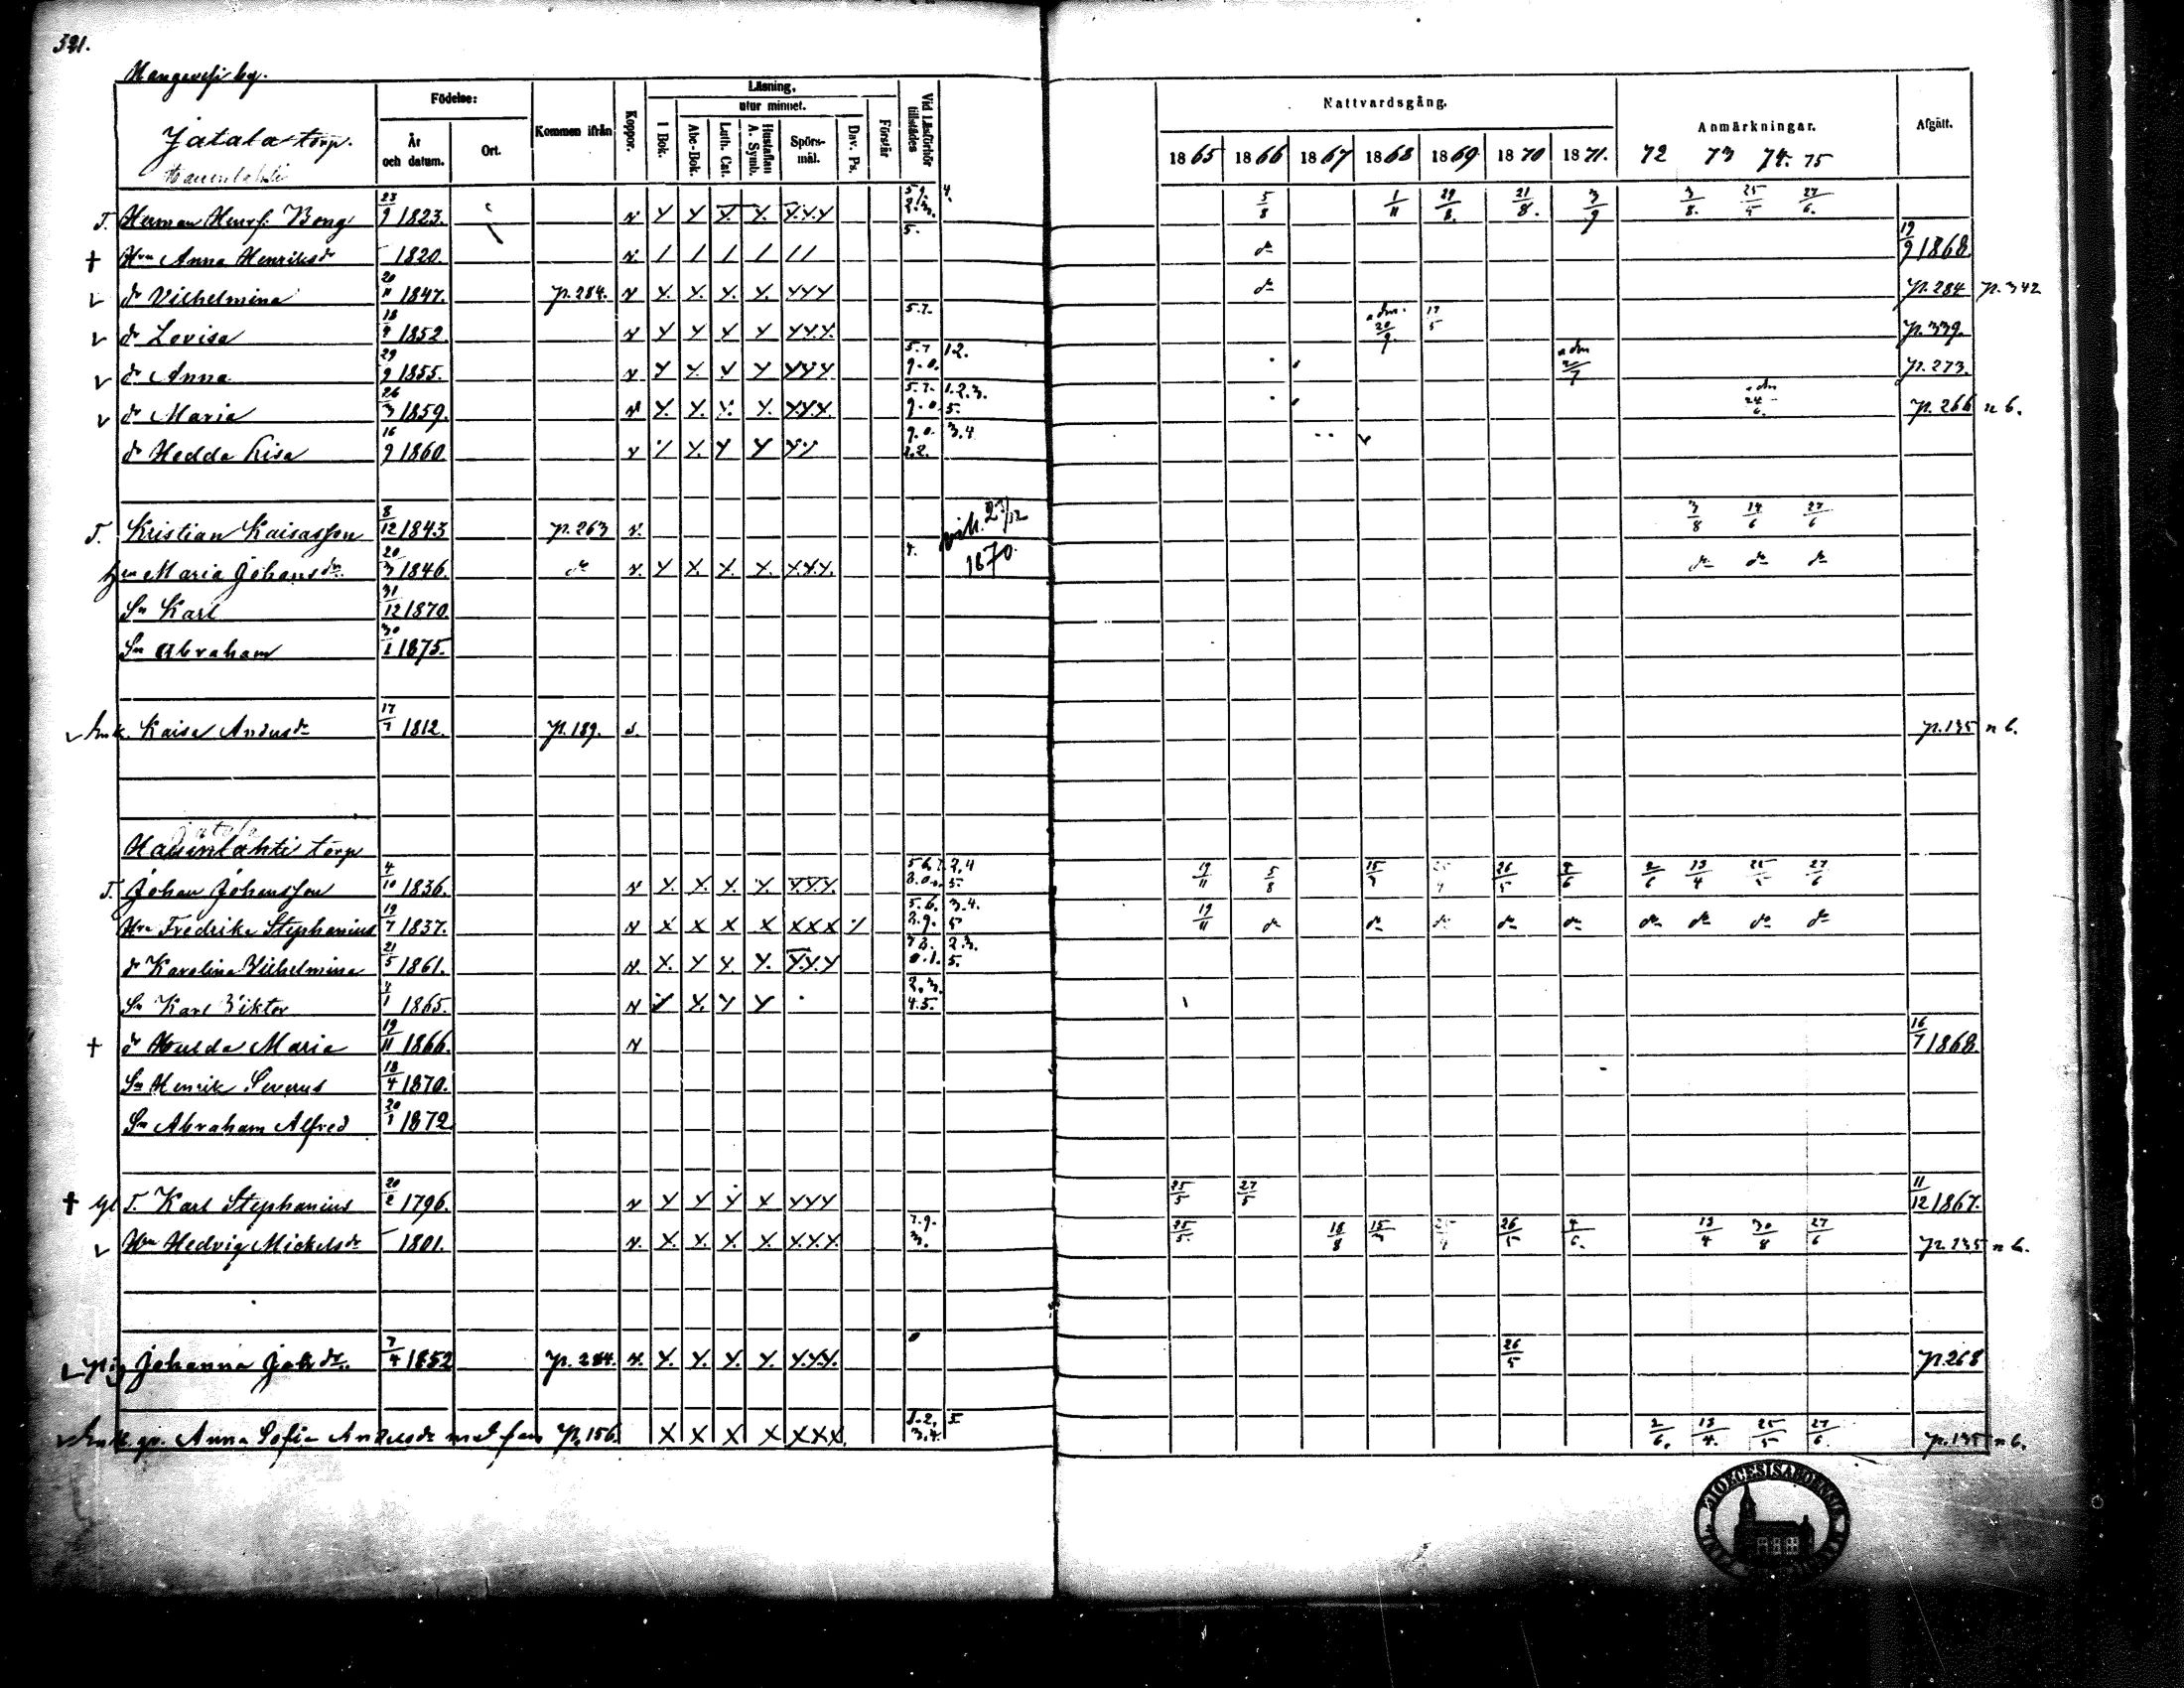 321.
Hangavesi by.
Jatala torp.
Hauenlahti
Födelse:
År och datum.
Ort.
Kommen ifrån
Koppor.
Läsning,
utur minnet.
I Bok.
Abc-Bok.
Luth. Cat.
Hustaflan A. Symb.
Spörsmål.
Dav. Ps.
Förstår
Vid Läsförhör tillstädes
Nattvardsgång.
1865 1866 1867 1868 1869 1870 1871.
Anmärkningar.
72 73 74. 75
Afgått.
T. Herman Henrss. Bong 23/9 1823. v Y Y X Y. Y.Y.Y 5/8 1/11 29/8. 21/8. 3/9 3/8. 25/5 27/6.
† Hru Anna Henriksdr 1820. v. / / / / // dr 19/9 1868.
v dr Vilhelmina 20/11 1847. p. 284. v Y. Y. Y. Y. YYY dr p. 284 p. 342
v dr Lovisa 18/9 1852. v Y Y Y Y Y.Y.Y. 5.7. adm. 20/9. 17/5 p. 339.
v dr Anna 29/9 1855. v Y Y. Y Y YYY 5.7 9.0. 12. adm p. 273.
v dr Maria 26/3 1859. v Y. Y. Y. Y. Y.Y.Y. 5.7. 9.0. 1.2.3. 5. adm 24/6. p. 266 n 6.
dr Hedda Lisa 16/9 1860. v Y Y. Y Y YY 9.0. 2.2. 3.4
T. Kristian Kaisasson 8/12 1843 p. 263 v. vih. 23/12 1870. 3/8 14/6 27/6
Hn Maria Johansdr. 20/3 1846. dr v. Y X. X. X. X.Y.Y. 4. dr dr dr
Sn Karl 31/12 1870.
Sn Abraham 30/1 1875.
v Enk. Kaisa Andersdr 17/7 1812. p. 189. v. p. 135 n 6.
Jatala
Hauenlahti torp
T. Johan Johansson 4/10 1836. v Y. X. Y. X Y.Y.Y. 19/11 5/8 15/3 26/5 2/6 13/4 25/5 27/6
Hru Fredrika Stephanius 19/7 1837. v X X X X XXX 5.6. 8.9. 3.4. 5 19/11 dr dr dr dr dr dr dr dr dr
dr Karolina Vilhelmina 21/5 1861. v. X. Y Y. Y. Y.Y.Y 2.3. 5.
Sn Karl Viktor 4/1 1865. v Y X. Y Y 2.3. 4.5.
† dr Hulda Maria 19/11 1866. v 16/7 1868.
Sn Henrik Severus 18/4 1870.
Sn Abraham Alfred 1872
† gl T. Karl Stephanius 20/2 1796. v Y Y Y X YYY 25/5 27/5 11/12 1867.
v Hru Hedvig Mickelsdr 1801. v. X. X. X. X. X.X.X. 7.9. 3. 25/5 18/8 15/3 26/5 13/4 30/8 27/6 p. 135 n 6.
v pig Johanna Johdr. 7/4 1852 p. 284. v. Y. Y. Y. Y. Y.Y.Y. 0 26/5 p. 268
v Enk. gr. Anna Sofia Andersdr p. 156. X X X X XXX. 1.2. 3.4. 5. 2/6. 13/4. 25/5 27/6. p. 135 n 6.